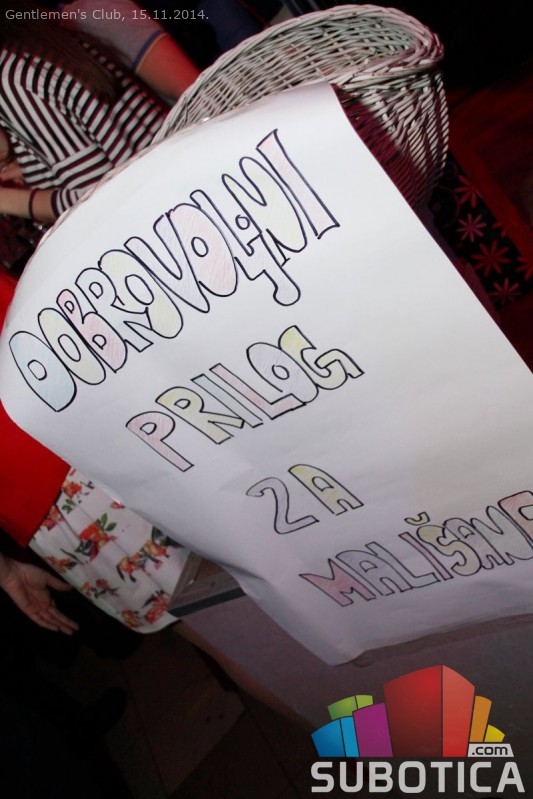 Gentlemen's Club, 15.11.2014.
DOBROVOLJNI
PRILOG
ZA
MALIŠANE
.com
SUBOTICA